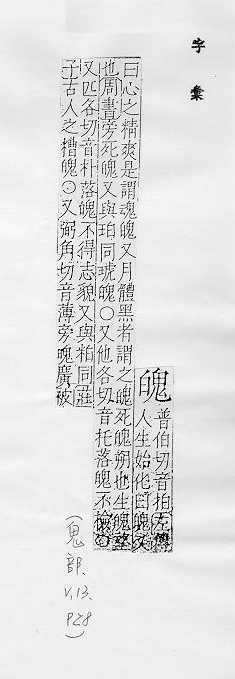 字彙
魄
普伯切音拍左傳
人生始化曰魄又
曰心之精爽是謂魂魄又月體黑者謂之魄死魄朔也生魄望
也周書旁死魄又與珀同琥魄〇又他各切音托落魄不檢〇
又匹各切音朴落魄不得志貌又與粕同莊
子古人之糟魄〇又弼角切音薄旁魄廣被
(鬼部、
V.13.
P28)